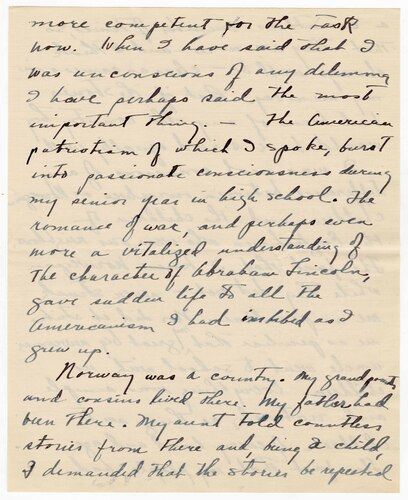 more competent for the task
now. When I have said that I
was unconscious of any dilemma
I have perhaps said the most
important thing. — The American
patriotism of which I spoke, burst
into passionate consciousness during
my senior year in high school. The
romance of war, and perhaps even
more a vitalized understanding of
the character of Abraham Lincoln,
gave sudden life to all the
Americanism I had imbibed as I
grew up.
Norway was a country. My grandparents
and cousins lived there. My father had
been there. My aunt told countless
stories from there and, being a child,
I demanded that the stories be repeated